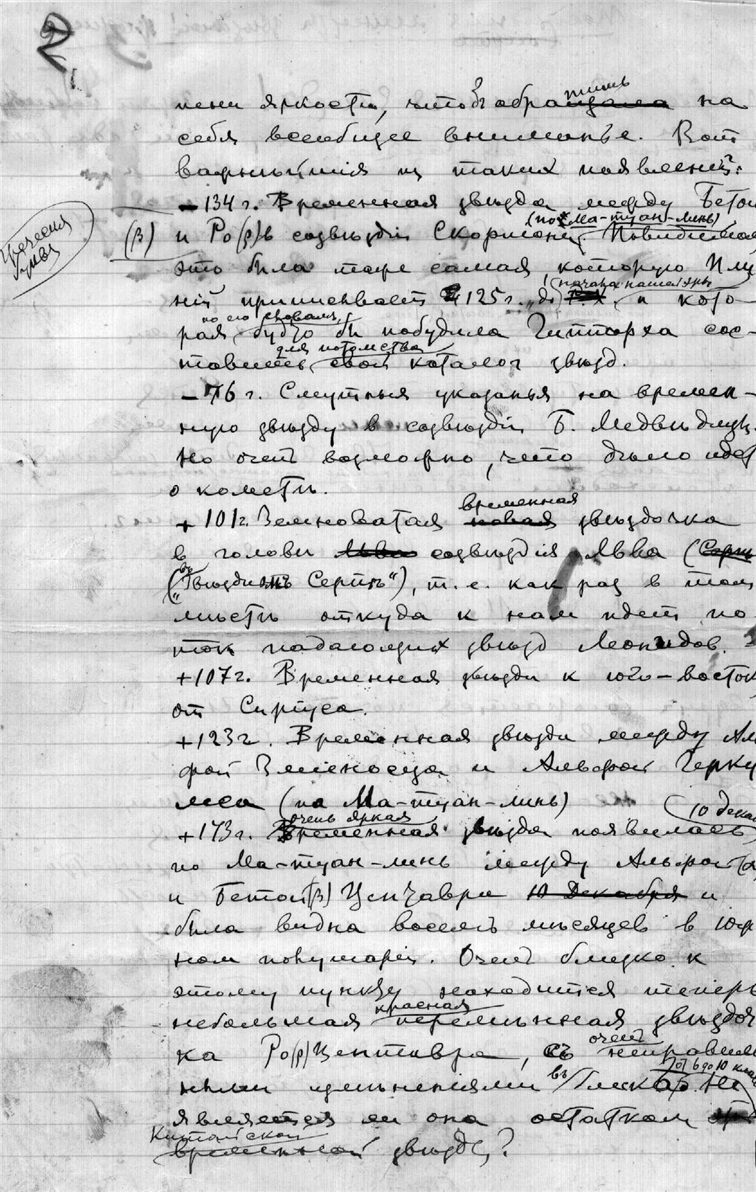 2
пени яркости, чтобъ обращать на
себя всеобщее вниманье. Вот
важнѣйшія из таких появленій:
— 134 г. Временная звѣзда между Бетой
Греческія буквы
(β) и Ро(ρ) въ созвѣздіи Скорпіона (по Ма-туан-линь). Повидимому
это была таже самая, которую Пли-
ній приписывает 125 г. „до начала нашей эры и кото-
рая по его словамъ будто бы побудила Гиппарха сос-
тавить для потомства свой каталог звѣзд.
— 76 г. Смутныя указанья на времен-
ную звѣзду в созвѣздіи Б. Медвѣдицы.
Но очень возможно, что дѣло идет
о кометѣ.
+ 101 г. Зеленоватая временная новая звѣздочка
в головѣ Льва созвѣздія Льва (Серп
(въ „Гвѣздномъ Серпѣ“), т.е. как раз в том
мѣстѣ откуда к нам идет по-
ток падающих звѣзд Леонидов.
+ 107 г. Временная звѣзда к юго-востоку
от Сиріуса.
+ 123 г. Временная звѣзда между Аль-
фой Змѣеносца и Альфой Герку-
леса (по Ма-туан-линь)
+ 173 г. очень яркая Временная звѣзда появилась 10 декаб
по Ма-туан-линь между Альфой (α)
и Бетой (β) Центавра 10 Декабря и
была видна восемь мѣсяцев в юж-
ном полушаріи. Очень близко к
этому пункту находится теперь
небольшая красная перемѣнная звѣздоч-
ка Ро(ρ) Центавра, съ очень неправиль-
ными измѣненіями въ блескѣ от 6 до 10 класса. Не
является ли она остатком
Китайской временной звѣзды?